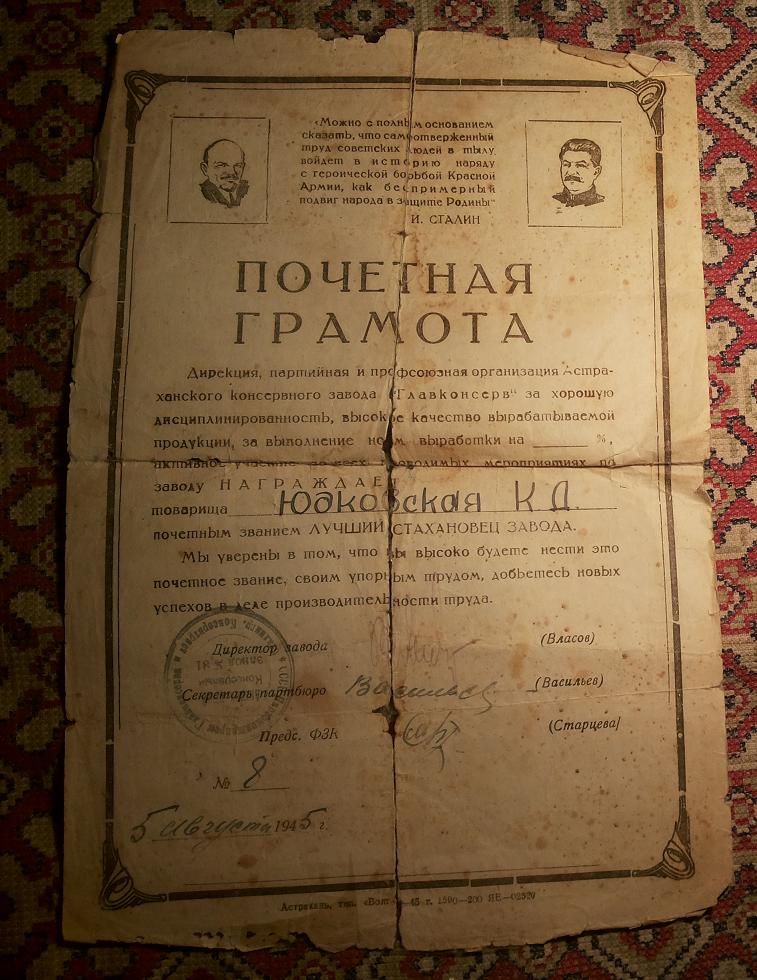 «Можно с полным основанием
сказать, что самоотверженный
труд советских людей в тылу
войдет в историю наряду
с героической борьбой Красной
Армии, как беспримерный
подвиг народа в защите Родины"
И. СТАЛИН
ПОЧЕТНАЯ
ГРАМОТА
Дирекция, партийная и профсоюзная организация Астра-
ханского консервного завода "Главконсерв" за хорошую
дисциплинированность, высокое качество вырабатываемой
продукции, за выполнение норм выработки на ______ %,
активное участие во всех проводимых мероприятиях по
заводу НАГРАЖДАЕТ
товарища Юдковская К Д.
почетным званием ЛУЧШИЙ СТАХАНОВЕЦ ЗАВОДА.
Мы уверены в том, что Вы высоко будете нести это
почетное звание, своим упорным трудом, добьетесь новых
успехов в деле производительности труда.
Директор завода (Власов)
Секретарь партбюро Васильев (Васильев)
Предс. ФЗК (Старцева)
№ 8
5 августа 1945 г.
Астрахань, тип. «Волга» 45 г. 1590—200 ЯЕ—02520